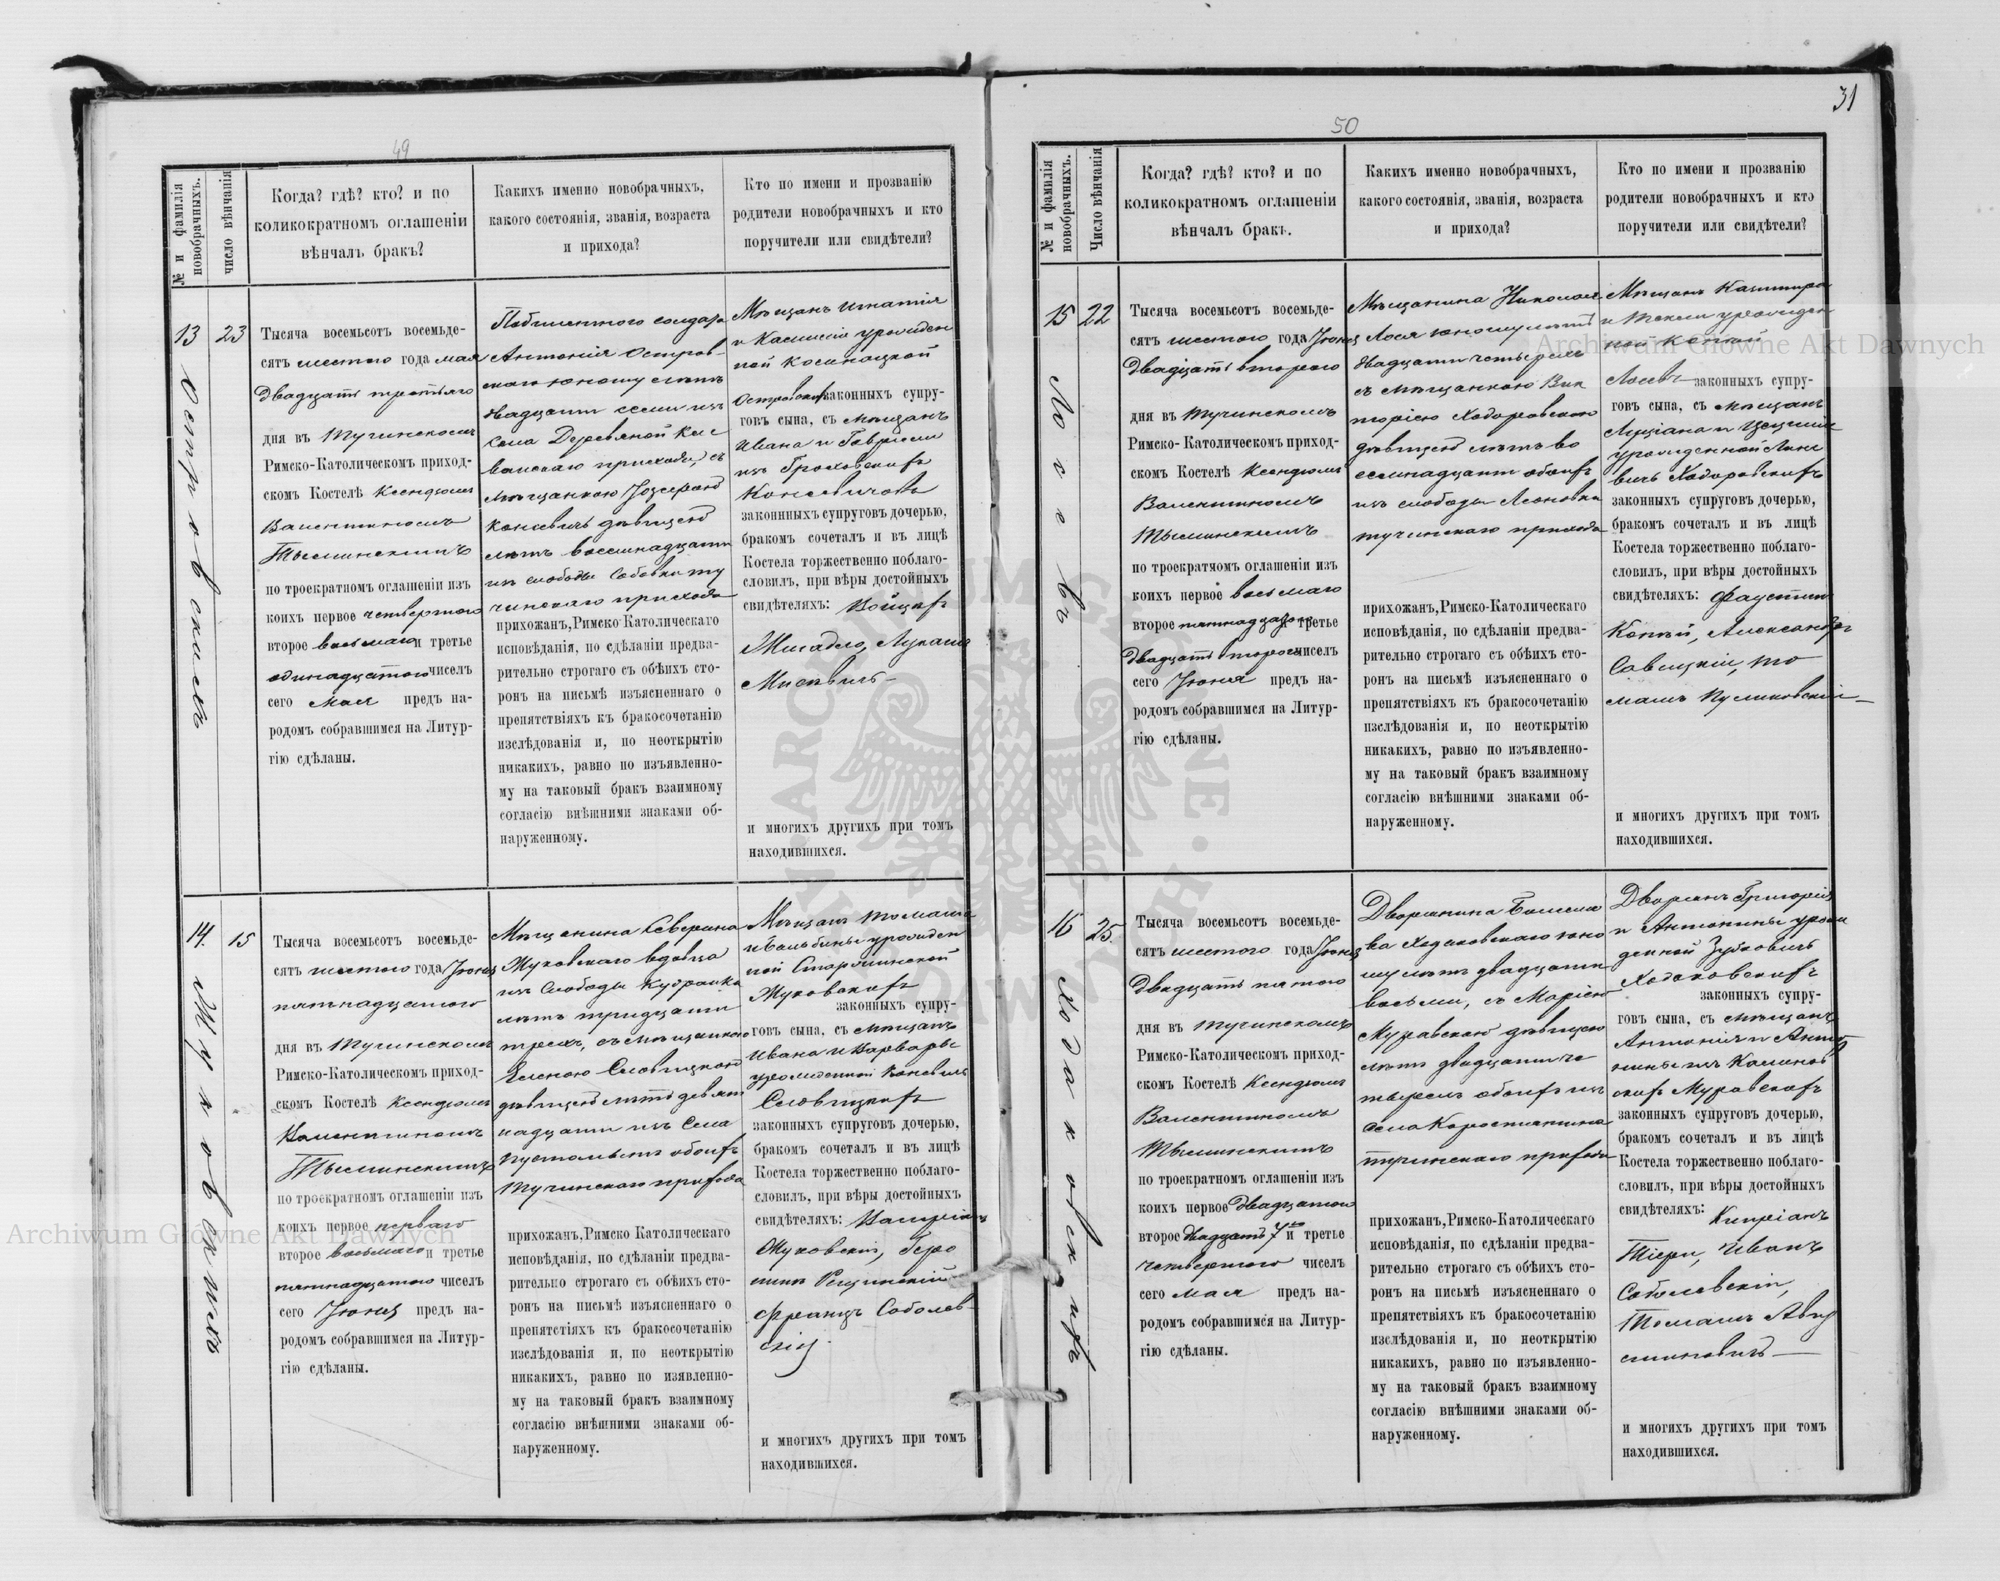 31
49
№ и фамилія новобрачныхъ.
число вѣнчанія
Когда? гдѣ? кто? и по
коликократномъ оглашеніи
вѣнчалъ бракъ?
Какихъ именно новобрачныхъ,
какого состоянія, званія, возраста
и прихода?
Кто по имени и прозванію
родители новобрачныхъ и кто
поручители или свидѣтели?
13
Островскихъ
23
Тысяча восемьсотъ восемьде-
сятъ шестого года мая
двадцать третьяго
дня въ Тучинскомъ
Римско-Католическомъ приход-
скомъ Костелѣ Ксендзомъ
Валентиномъ
Тысминскимъ
по троекратномъ оглашеніи изъ
коихъ первое четвертого
второе восьмаго и третье
одинадцатого чиселъ
сего мая предъ на-
родомъ собравшимся на Литур-
гію сдѣланы.
Антонія Остров-
скаго юношу лѣтъ
двадцати семи изъ
села Деревяной Кле
ванскаго прихода, съ
мѣщанкою Іозефою
Коневичъ дѣвицею
лѣтъ восемнадцати
изъ слободы ту
чинскаго прихода
прихожанъ, Римско Католическаго
исповѣданія, по сдѣланіи предва-
рительно строгаго съ обѣихъ сто-
ронъ на письмѣ изъясненнаго о
препятствіяхъ къ бракосочетанію
изслѣдованія и, по неоткрытію
никакихъ, равно по изъявленно-
му на таковый бракъ взаимному
согласію внѣшними знаками об-
наруженному.
Мѣщанъ Игнатія
и урожден
ной
Островскихъ законныхъ супру-
говъ сына, съ мѣщанъ
Ивана и Габріели
изъ Гроховскихъ
Коневичовъ
законнныхъ супруговъ дочерью,
бракомъ сочеталъ и въ лицѣ
Костела торжественно поблаго-
словилъ, при вѣры достойныхъ
свидѣтеляхъ: Войцехъ
Жигадло, Лукашъ
и многихъ другихъ при томъ
находившихся.
14.
Жуковскихъ
15
Тысяча восемьсотъ восемьде-
сятъ шестого года Іюня
пятнадцатого
дня въ Тучинскомъ
Римско-Католическомъ приход-
скомъ Костелѣ Ксендзомъ
Валентиномъ
Тысминскимъ
по троекратномъ оглашеніи изъ
коихъ первое перваго
второе восьмаго и третье
пятнадцатого чиселъ
сего Іюня предъ на-
родомъ собравшимся на Литур-
гію сдѣланы.
Мѣщанина Северина
Жуковскаго вдовца
изъ Слободы
лѣтъ тридцати
трехъ, съ мѣщанкою
Еленою Словицкою
дѣвицею лѣтъ девят
надцати изъ Села
Пустомытъ обоихъ
Тучинскаго прихода
прихожанъ, Римско Католическаго
исповѣданія, по сдѣланіи предва-
рительно строгаго съ обѣихъ сто-
ронъ на письмѣ изъясненнаго о
препятстіяхъ къ бракосочетанію
изслѣдованія и, по неоткрытію
никакихъ, равно по изявленно-
му на таковый бракъ взаимному
согласію внѣшними знаками об-
наруженному.
Мѣщанъ Томаша
и Бальбины урожден
ной
Жуковскихъ
законныхъ супру-
говъ сына, съ мѣщанъ
Ивана и Варвары
урожденной Коневичъ
Словицкихъ
законныхъ супруговъ дочерью,
бракомъ сочеталъ и въ лицѣ
Костела торжественно поблаго-
словилъ, при вѣры достойныхъ
свидѣтеляхъ:
Жуковскій, Геро
нимъ
Францъ Соболев-
скій.
и многихъ другихъ при томъ
находившихся.
50
№ и фамилія новобрачныхъ.
Число вѣнчанія
Когда? гдѣ? кто? и по
коликократномъ оглашеніи
вѣнчалъ бракъ.
Какихъ именно новобрачныхъ,
какого состоянія, званія, возраста
и прихода?
Кто по имени и прозванію
родители новобрачныхъ и кто
поручители или свидѣтели?
15
22
Тысяча восемьсотъ восемьде-
сятъ шестого года Іюня
двадцать второго
дня въ Тучинскомъ
Римско-Католическомъ приход-
скомъ Костелѣ Ксендзомъ
Валентиномъ
Тысминскимъ
по троекратномъ оглашеніи изъ
коихъ первое восьмаго
второе пятнадцатого и третье
двадцать второго чиселъ
сего Іюня предъ на-
родомъ собравшимся на Литур-
гію сдѣланы.
Мѣщанина Николая
юношу лѣтъ
двадцати четырехъ
съ мѣщанкою Вик
торіею Ходоровскою
дѣвицею лѣтъ во
семнадцати обоихъ
изъ слободы Леоновка
тучинскаго прихода
прихожанъ, Римско-Католическаго
исповѣданія, по сдѣланіи предва-
рительно строгаго съ обѣихъ сто-
ронъ на письмѣ изъясненнаго о
препятствіяхъ къ бракосочетанію
изслѣдованія и, по неоткрытію
никакихъ, равно по изъявленно-
му на таковый бракъ взаимному
согласію внѣшними знаками об-
наруженному.
Мѣщанъ Казимира
и Теклы урожден
ной
законныхъ супру-
говъ сына, съ мѣщанъ
и Цециліи
урожденной
Ходоровскихъ
законныхъ супруговъ дочерью,
бракомъ сочеталъ и въ лицѣ
Костела торжественно поблаго-
словилъ, при вѣры достойныхъ
свидѣтеляхъ: Фаустинъ
Александръ
Савицкій, То
машъ Куликовскій
и многихъ другихъ при томъ
находившихся.
16
Ходаковскихъ
25
Тысяча восемьсотъ восемьде-
сятъ шестого года Іюня
двадцать пятого
дня въ Тучинскомъ
Римско-Католическомъ приход-
скомъ Костелѣ Ксендзомъ
Валентиномъ
Тысминскимъ
по троекратномъ оглашеніи изъ
коихъ первое двадцатого
второе двадцать 7го и третье
четвертого чиселъ
сего мая предъ на-
родомъ собравшимся на Литур-
гію сдѣланы.
Дворянина Болесла
ва Ходаковскаго юно
шу лѣтъ двадцати
восьми, съ Маріею
Муравскою дѣвицею
лѣтъ двадцати че
тырехъ обоихъ изъ
села Коростятина
тучинскаго прихода
прихожанъ, Римско-Католическаго
исповѣданія, по сдѣланіи предва-
рительно строгаго съ обѣихъ сто-
ронъ на письмѣ изъясненнаго о
препятствіяхъ къ бракосочетанію
изслѣдованія и, по неоткрытію
никакихъ, равно по изъявленно-
му на таковый бракъ взаимному
согласію внѣшними знаками об-
наруженному.
Дворянъ Григорія
и Антонины урож
денной Зубовичъ
Ходаковскихъ
законныхъ супру-
говъ сына, съ мѣщанъ
Антонія и Анто
нины изъ Калинов
скихъ Муравскихъ
законныхъ супруговъ дочерью,
бракомъ сочеталъ и въ лицѣ
Костела торжественно поблаго-
словилъ, при вѣры достойныхъ
свидѣтеляхъ: Кипріанъ
Иванъ
Соболевскій,
Томашъ Авгу
стиновичъ
и многихъ другихъ при томъ
находившихся.
Archiwum Główne Akt Dawnych
Archiwum Główne Akt Dawnych
ARCHIWUM GŁÓWNE AKT DAWNYCH